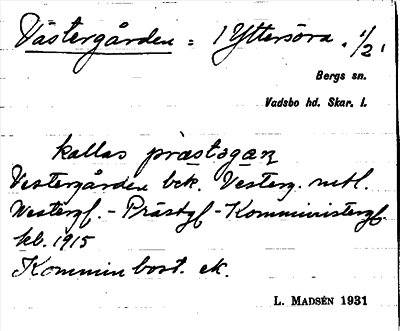 Västergården = 1 Yttersöra. 1/2 1
Bergs sn.
Vadsbo hd. Skar. l.
kallas præstagaɲ
Vestergården bek. Vesterg. mtl.
Westergf. - Prästgf - Kommministergf.
kb. 1915
Kommin bost. ek.
L. MADSÉN 1931